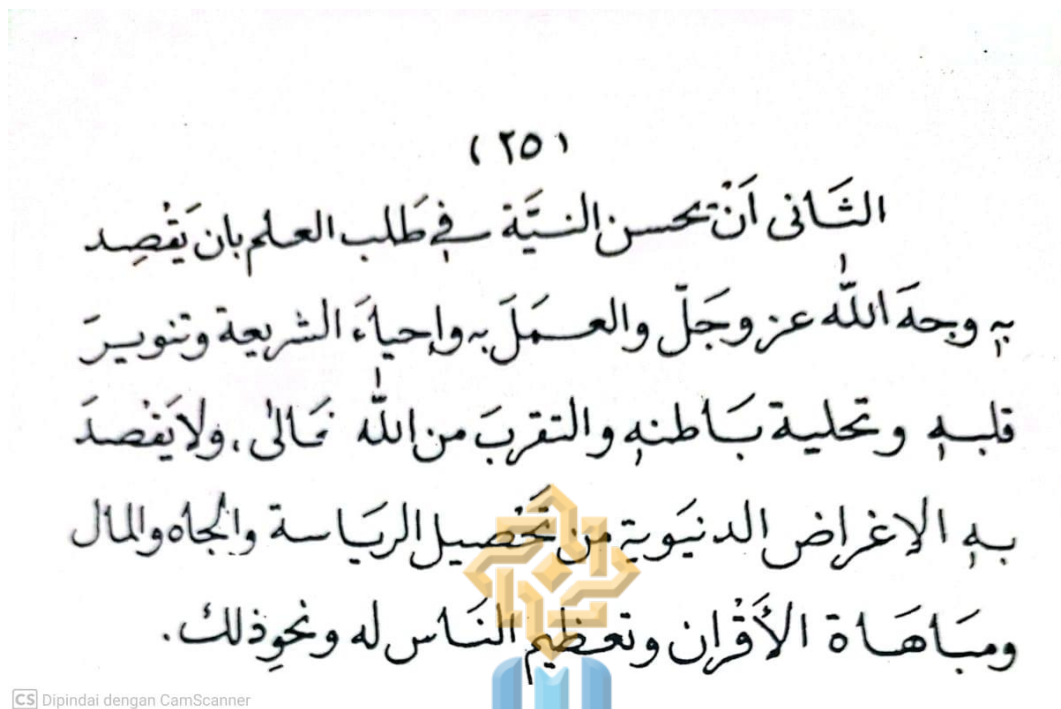 (٢٥)
الثَّانى اَنْ يحسن النيَّة فى طَلب العلم بان يَقْصِد
بِهِ وجهَ اللّٰه عز وجَلّ والعمَلَ به واحياءَ الشريعة وتنويرَ
قلبهِ وتحلية بَاطنهِ والتقربَ من اللّٰه تَعَالٰى، ولاَيَقْصدَ
بهِ الاغراض الدنيَويةِ من تَحْصيل الريَاسة والجاه والمال
ومبَاهَاة الأَقْرانِ وتعظيم النَاس له ونحوِذلك.
CS Dipindai dengan CamScanner